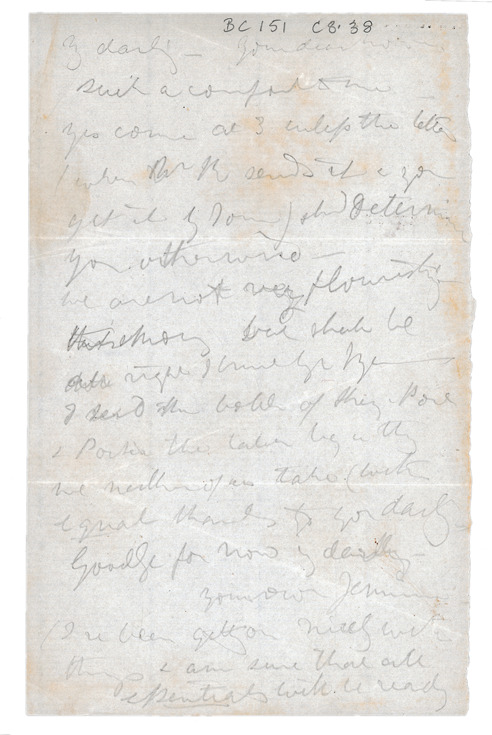 BC 151 C8.38
My darling - Your dear
such a comfort to me -
Yes come at 3 unless the letter
(when Mr R sends it & you
get it by 7 am) shd determine
you otherwise -
We are not very flourishing
this morning but shall be
all right
I send the bottle of
& Porter the latter
we neither of us take (with
equal thanks to you darling
Goodbye for now my darling -
Your own
(I've been getting on nicely with
things & am sure that all
essentials will be ready